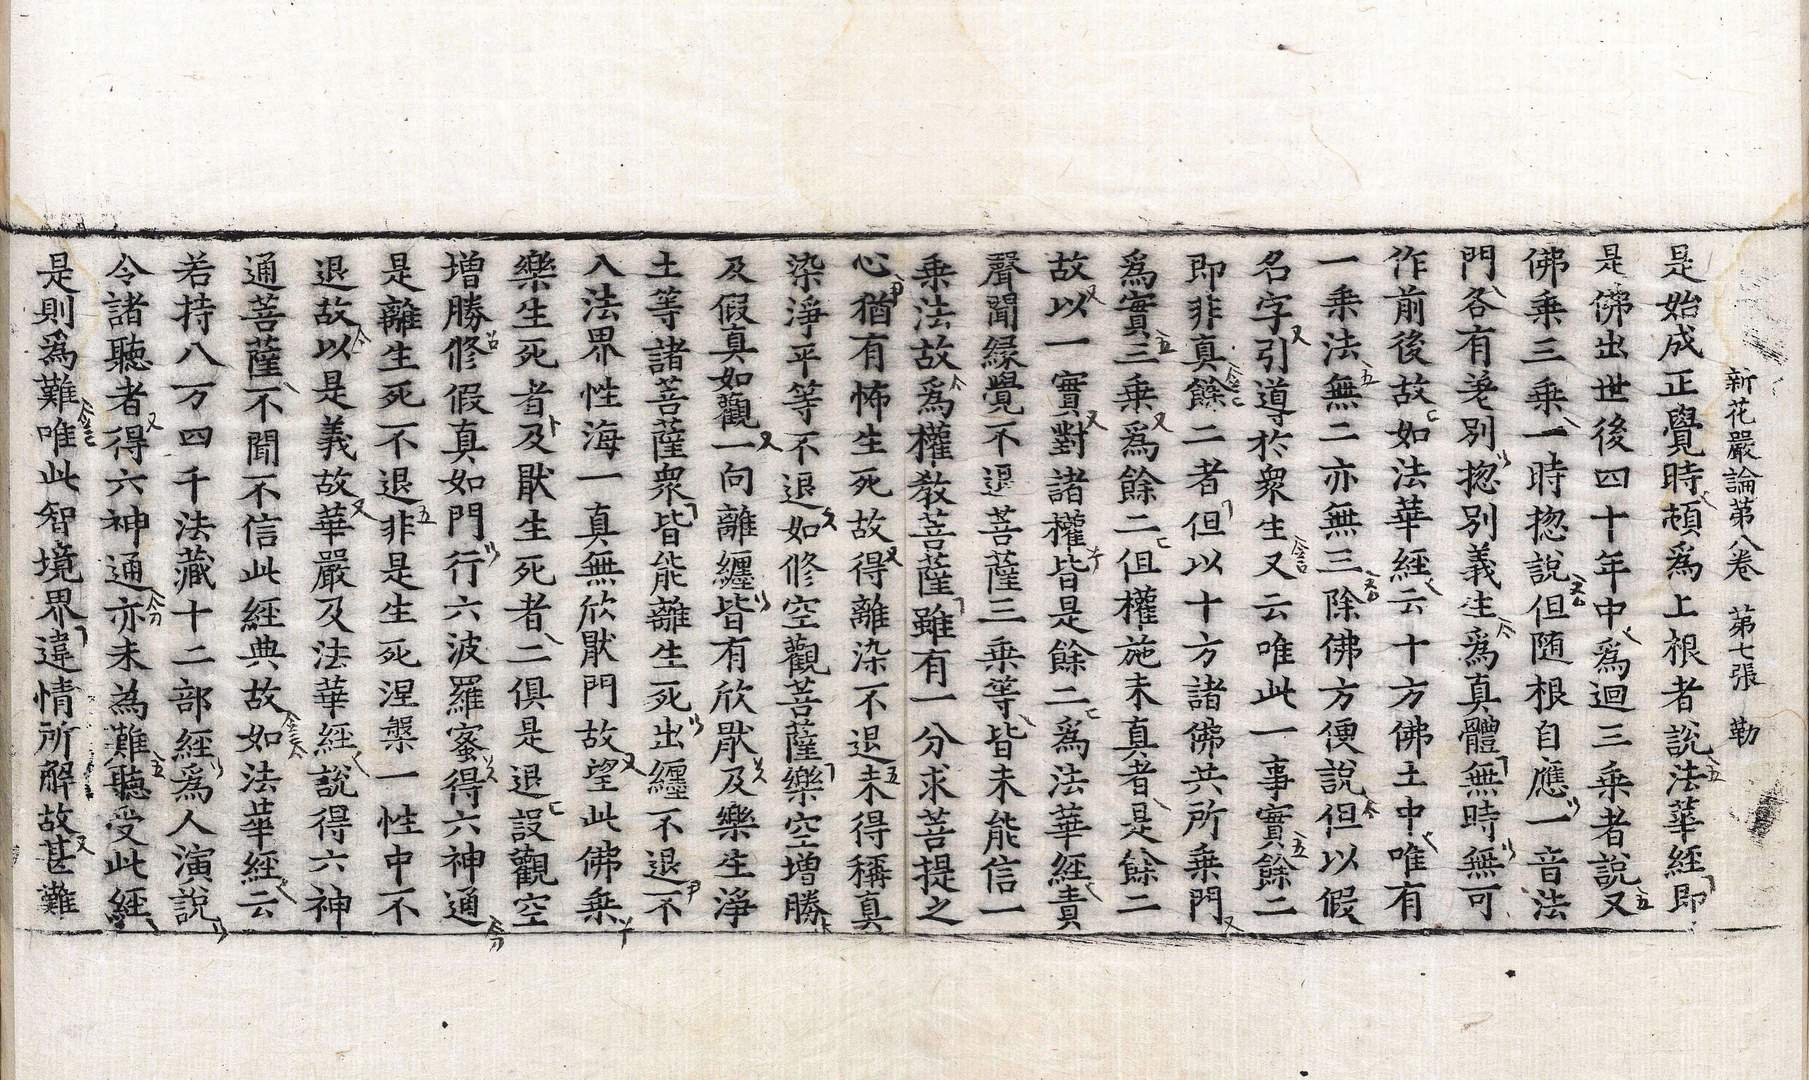 新花嚴論第八卷　第七張　勒
是始成正覺時頓爲上根者說法華經即
是佛出世後四十年中爲迴三乘者說又
佛乘三乘一時揔說但随根自應一音法
門各有差別揔別義生爲真體無時無可
作前後故如法華經云十方佛土中唯有
一乘法無二亦無三除佛方便說但以假
名字引導於衆生又云唯此一事實餘二
即非真餘二者但以十方諸佛共所乘門
爲實三乘爲餘二但權施未真者是餘二
故以一實對諸權皆是餘二爲法華經責
聲聞緣覺不退菩薩三乘等皆未能信一
乘法故爲權教菩薩雖有一分求菩提之
心猶有怖生死故得離染不退未得稱真
染淨平等不退如修空觀菩薩樂空增勝
及假真如觀一向離纏皆有欣猒及樂生淨
土等諸菩薩衆皆能離生死出纏不退不
入法界性海一真無欣猒門故望此佛乘
樂生死者及猒生死者二俱是退設觀空
增勝修假真如門行六波羅蜜得六神通
是離生死不退非是生死涅槃一性中不
退故以是義故華嚴及法華經說得六神
通菩薩不聞不信此經典故如法華經云
若持八万四千法藏十二部經爲人演說
令諸聽者得六神通亦未為難聽受此經
是則爲難唯此智境界違情所解故甚難